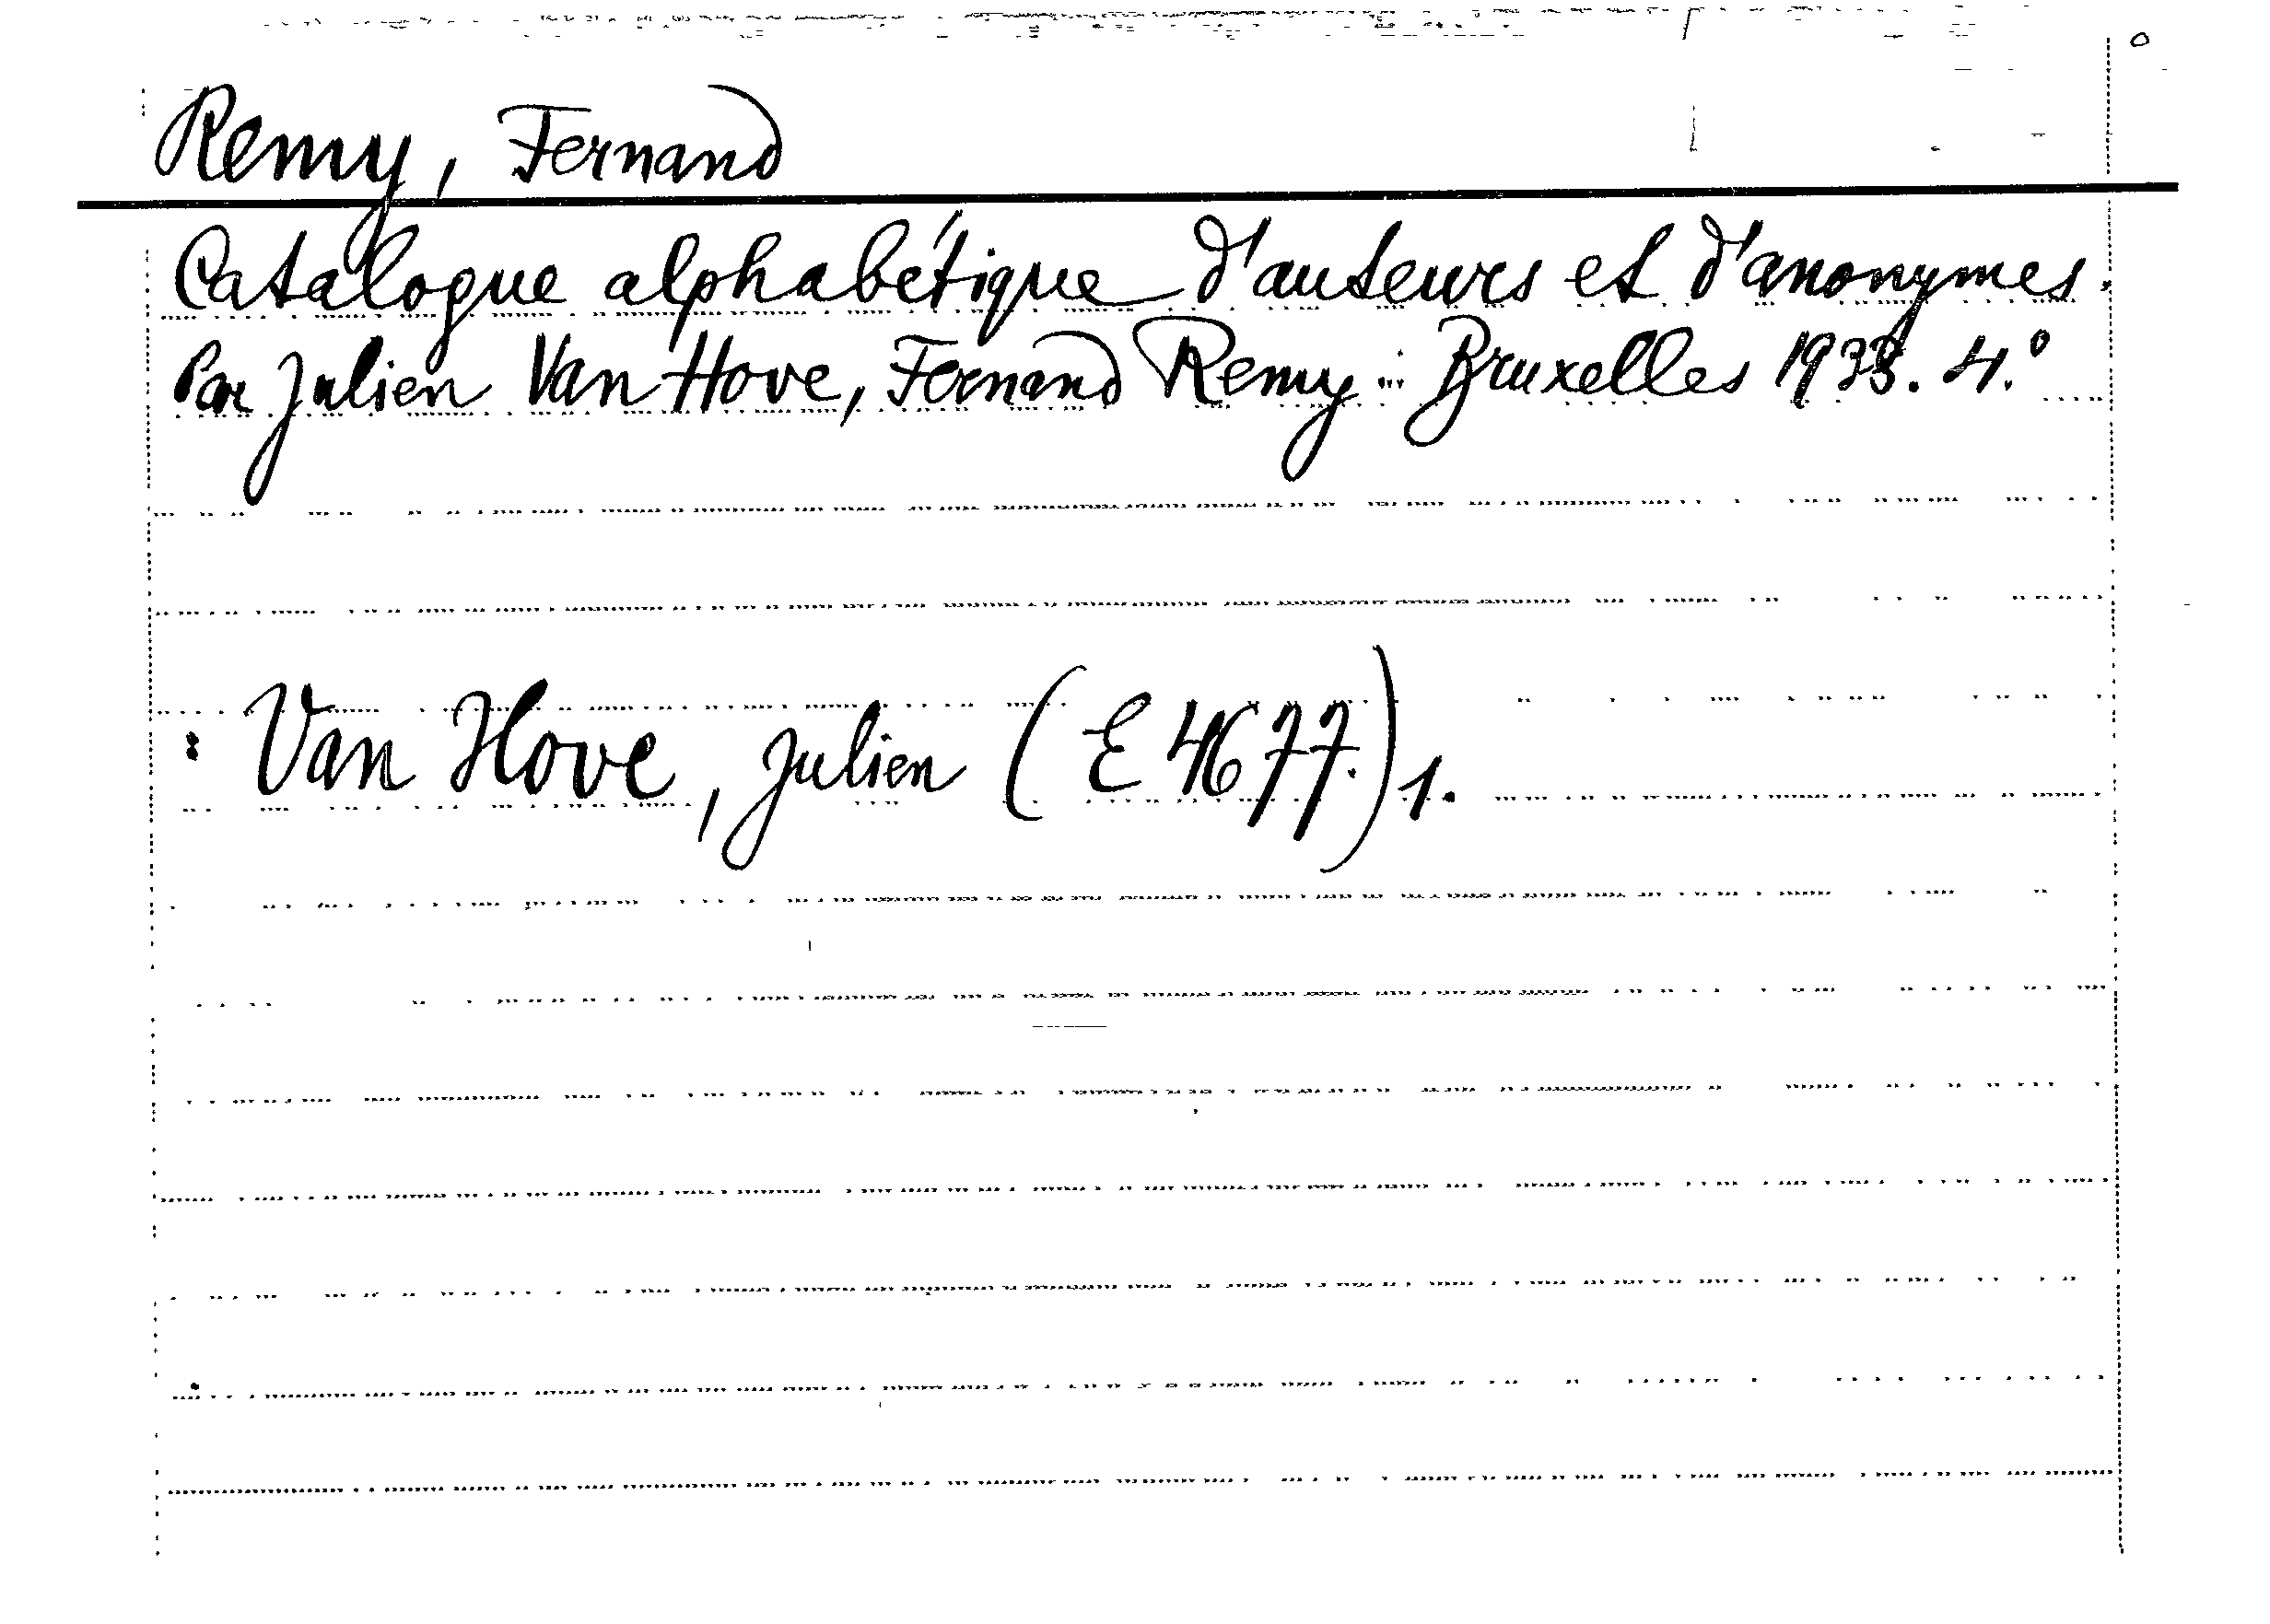 Remy, Fernand
Catalogue alphabétique d'auteurs et d'anonymes.
Par Julien Van Hove, Fernand Remy... Bruxelles 1933. 4.º
: Van Hove, Julien (E 4677.) 1.